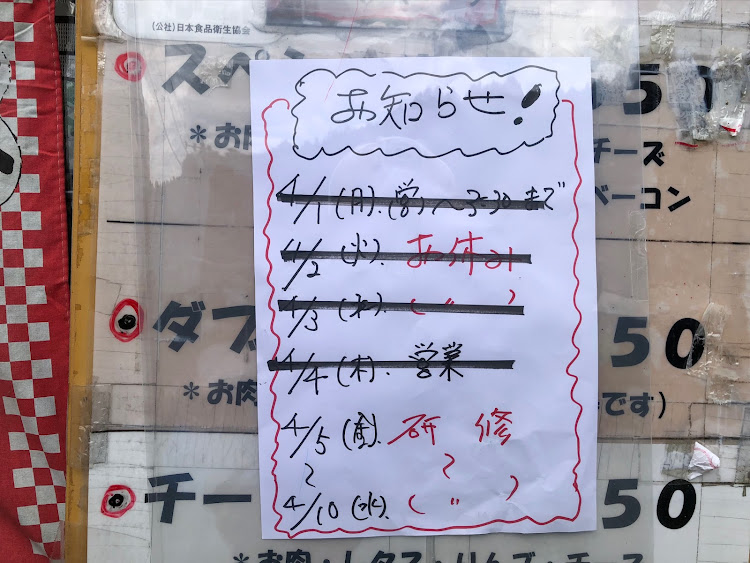 (公社)日本食品衛生協会
スペ
50
＊お肉
チーズ
ベーコン
お知らせ!
4/1(月).(営)〜3:30まで
4/2(火).お休み
4/3(水).(〃)
4/4(木).営業
4/5(金).研修
〜 〜
4/10(水).(〃)
ダブ
50
＊お肉
です)
チー
50
＊お肉・レタス・りんご・チーズ